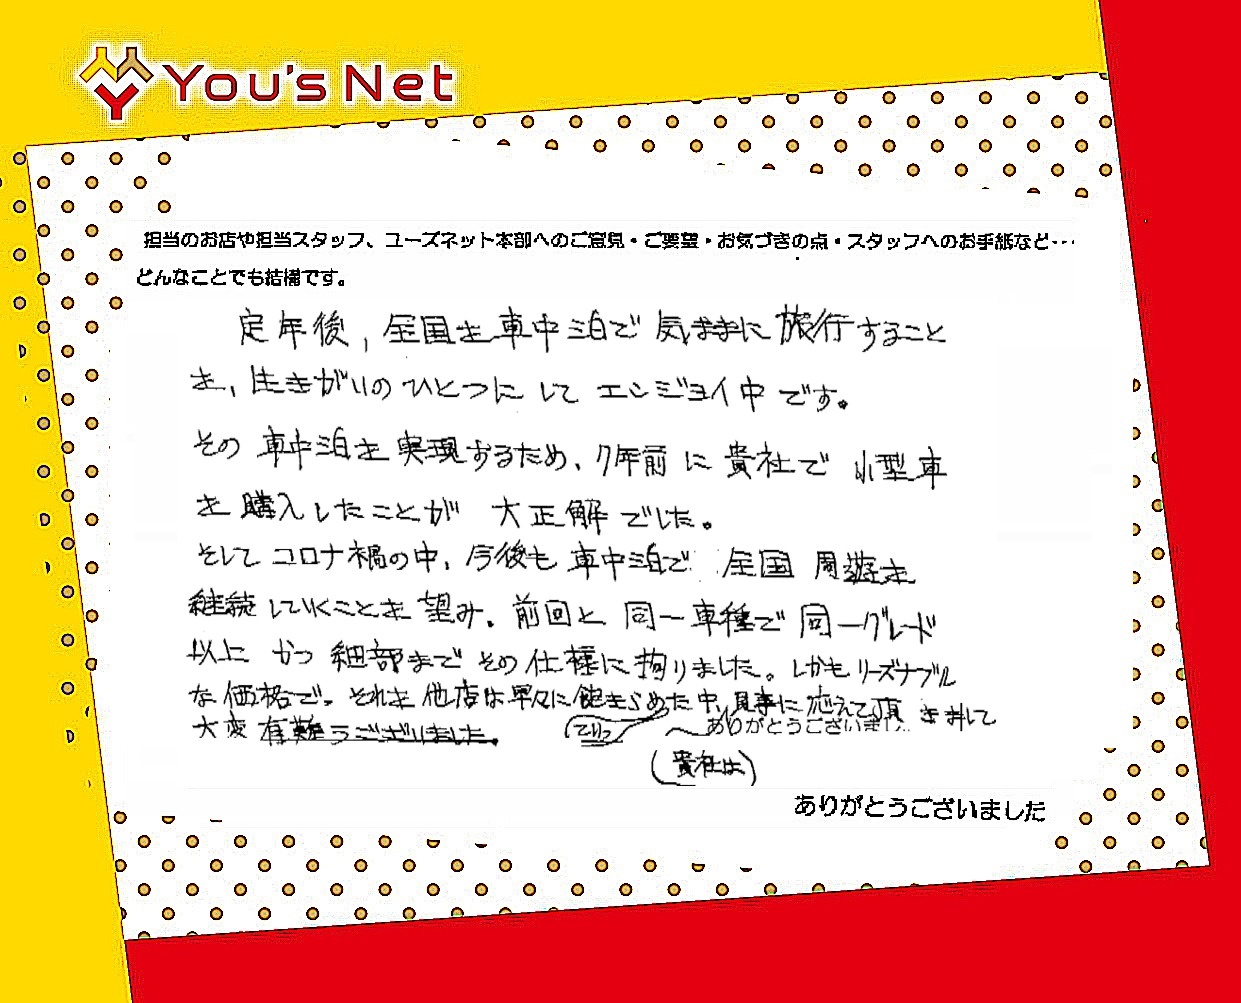 You's Net
担当のお店や担当スタッフ、ユーズネット本部へのご意見・ご要望・お気づきの点・スタッフへのお手紙など…
どんなことでも結構です。
定年後,全国を車中泊で気ままに旅行すること
を、生きがいのひとつにしてエンジョイ中です。
その車中泊を実現するため、7年前に貴社で小型車
を購入したことが大正解でした。
そしてコロナ禍の中、今後も車中泊で全国周遊を
継続していくことを望み、前回と同一車種で同一グレード
以上かつ細部までその仕様に拘りました。しかもリーズナブル
な価格で。それを他店は早々に あきらめた中、見事に応えて頂きまして
大変有難うございました。
ありがとうございました
(貴社は)
ありがとうございました